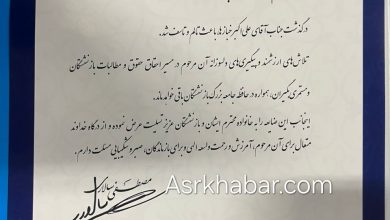 درگذشت جناب آقای علی اکبر خبازها، باعث تالم و تاسف شد.
تلاش‌های ارزشمند و پیگیری‌های دلسوزانه آن مرحوم در مسیر احقاق حقوق و مطالبات بازنشستگان
و مستمری بگیران، همواره در حافظه جامعه بزرگ بازنشستگان باقی خواهد ماند.
اینجانب این ضایعه را به خانواده محترم ایشان و بازنشستگان عزیز تسلیت عرض نموده و از درگاه خداوند
متعال برای آن مرحوم، آمرزش و رحمت واسعه الهی و برای بازماندگان، صبر و شکیبایی مسئلت دارم.
مصطفی سالاری
Asrkhabar.com